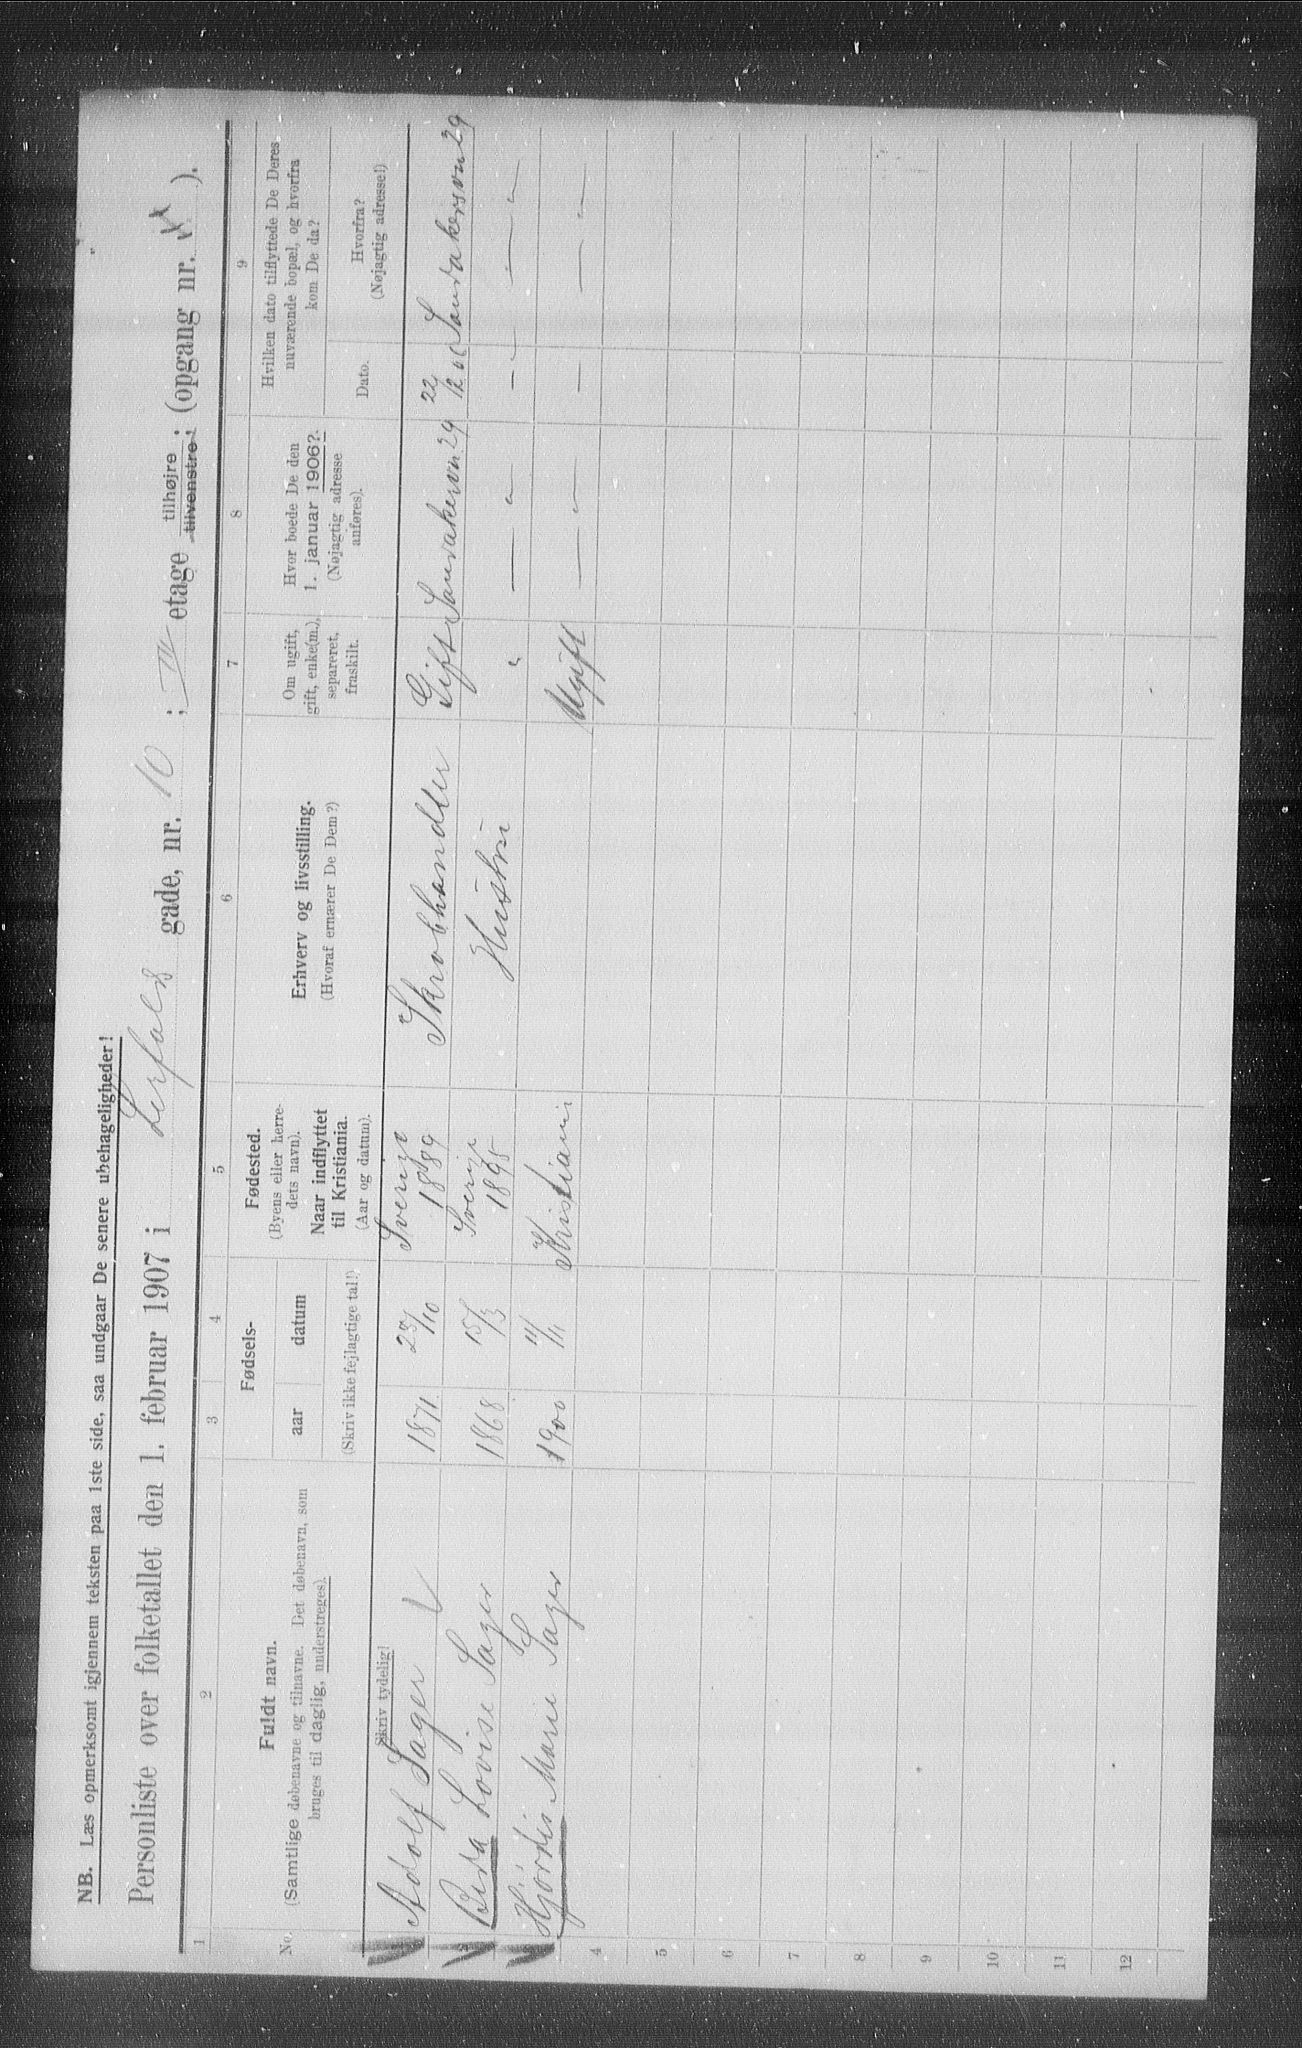 NB. Læs opmerksomt igjennem teksten paa 1ste side, saa undgaar De senere ubehageligheder!
Personliste over folketallet den 1. februar 1907 i Lerfals gade, nr. 10 ; IV etage tilhøjre tilvenstre; (opgang nr. ).
1 2 3 4 5 6 7 8 9
No.
Fuldt navn.
(Samtlige døbenavne og tilnavne. Det døbenavn, som
bruges til daglig, understreges).
Skriv tydelig!
Fødsels-
aar datum
(Skriv ikke fejlagtige tal!)
Fødested.
(Byens eller herre-
dets navn).
Naar indflyttet
til Kristiania.
(Aar og datum).
Erhverv og livsstilling.
(Hvoraf ernærer De Dem?)
Om ugift,
gift, enke(m.),
separeret,
fraskilt.
Hvor boede De den
1. januar 1906?
(Nøjagtig adresse
anføres).
Hvilken dato tilflyttede De Deres
nuværende bopæl, og hvorfra
kom De da?
Dato.
Hvorfra?
(Nøjagtig adresse!)
Adolf Sager 1871 23/10 Sverige 1889 Skrobhandler Gift Sandakervn. 29 22/12 06 Sandakersvn 29
Beda Lovise Sager 1868 15/3 Sverige 1895 Hustru " — " — - " — " —
Hjørdis Marie Sager 1900 11/11 Kristiania Ugift — " — — — " —
4
5
6
7
8
9
10
11
12